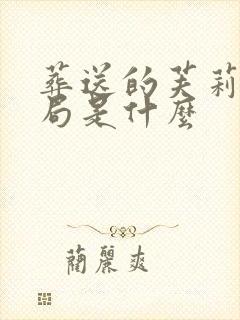 葬送的芙莉
局是什麼
蔺麗爽